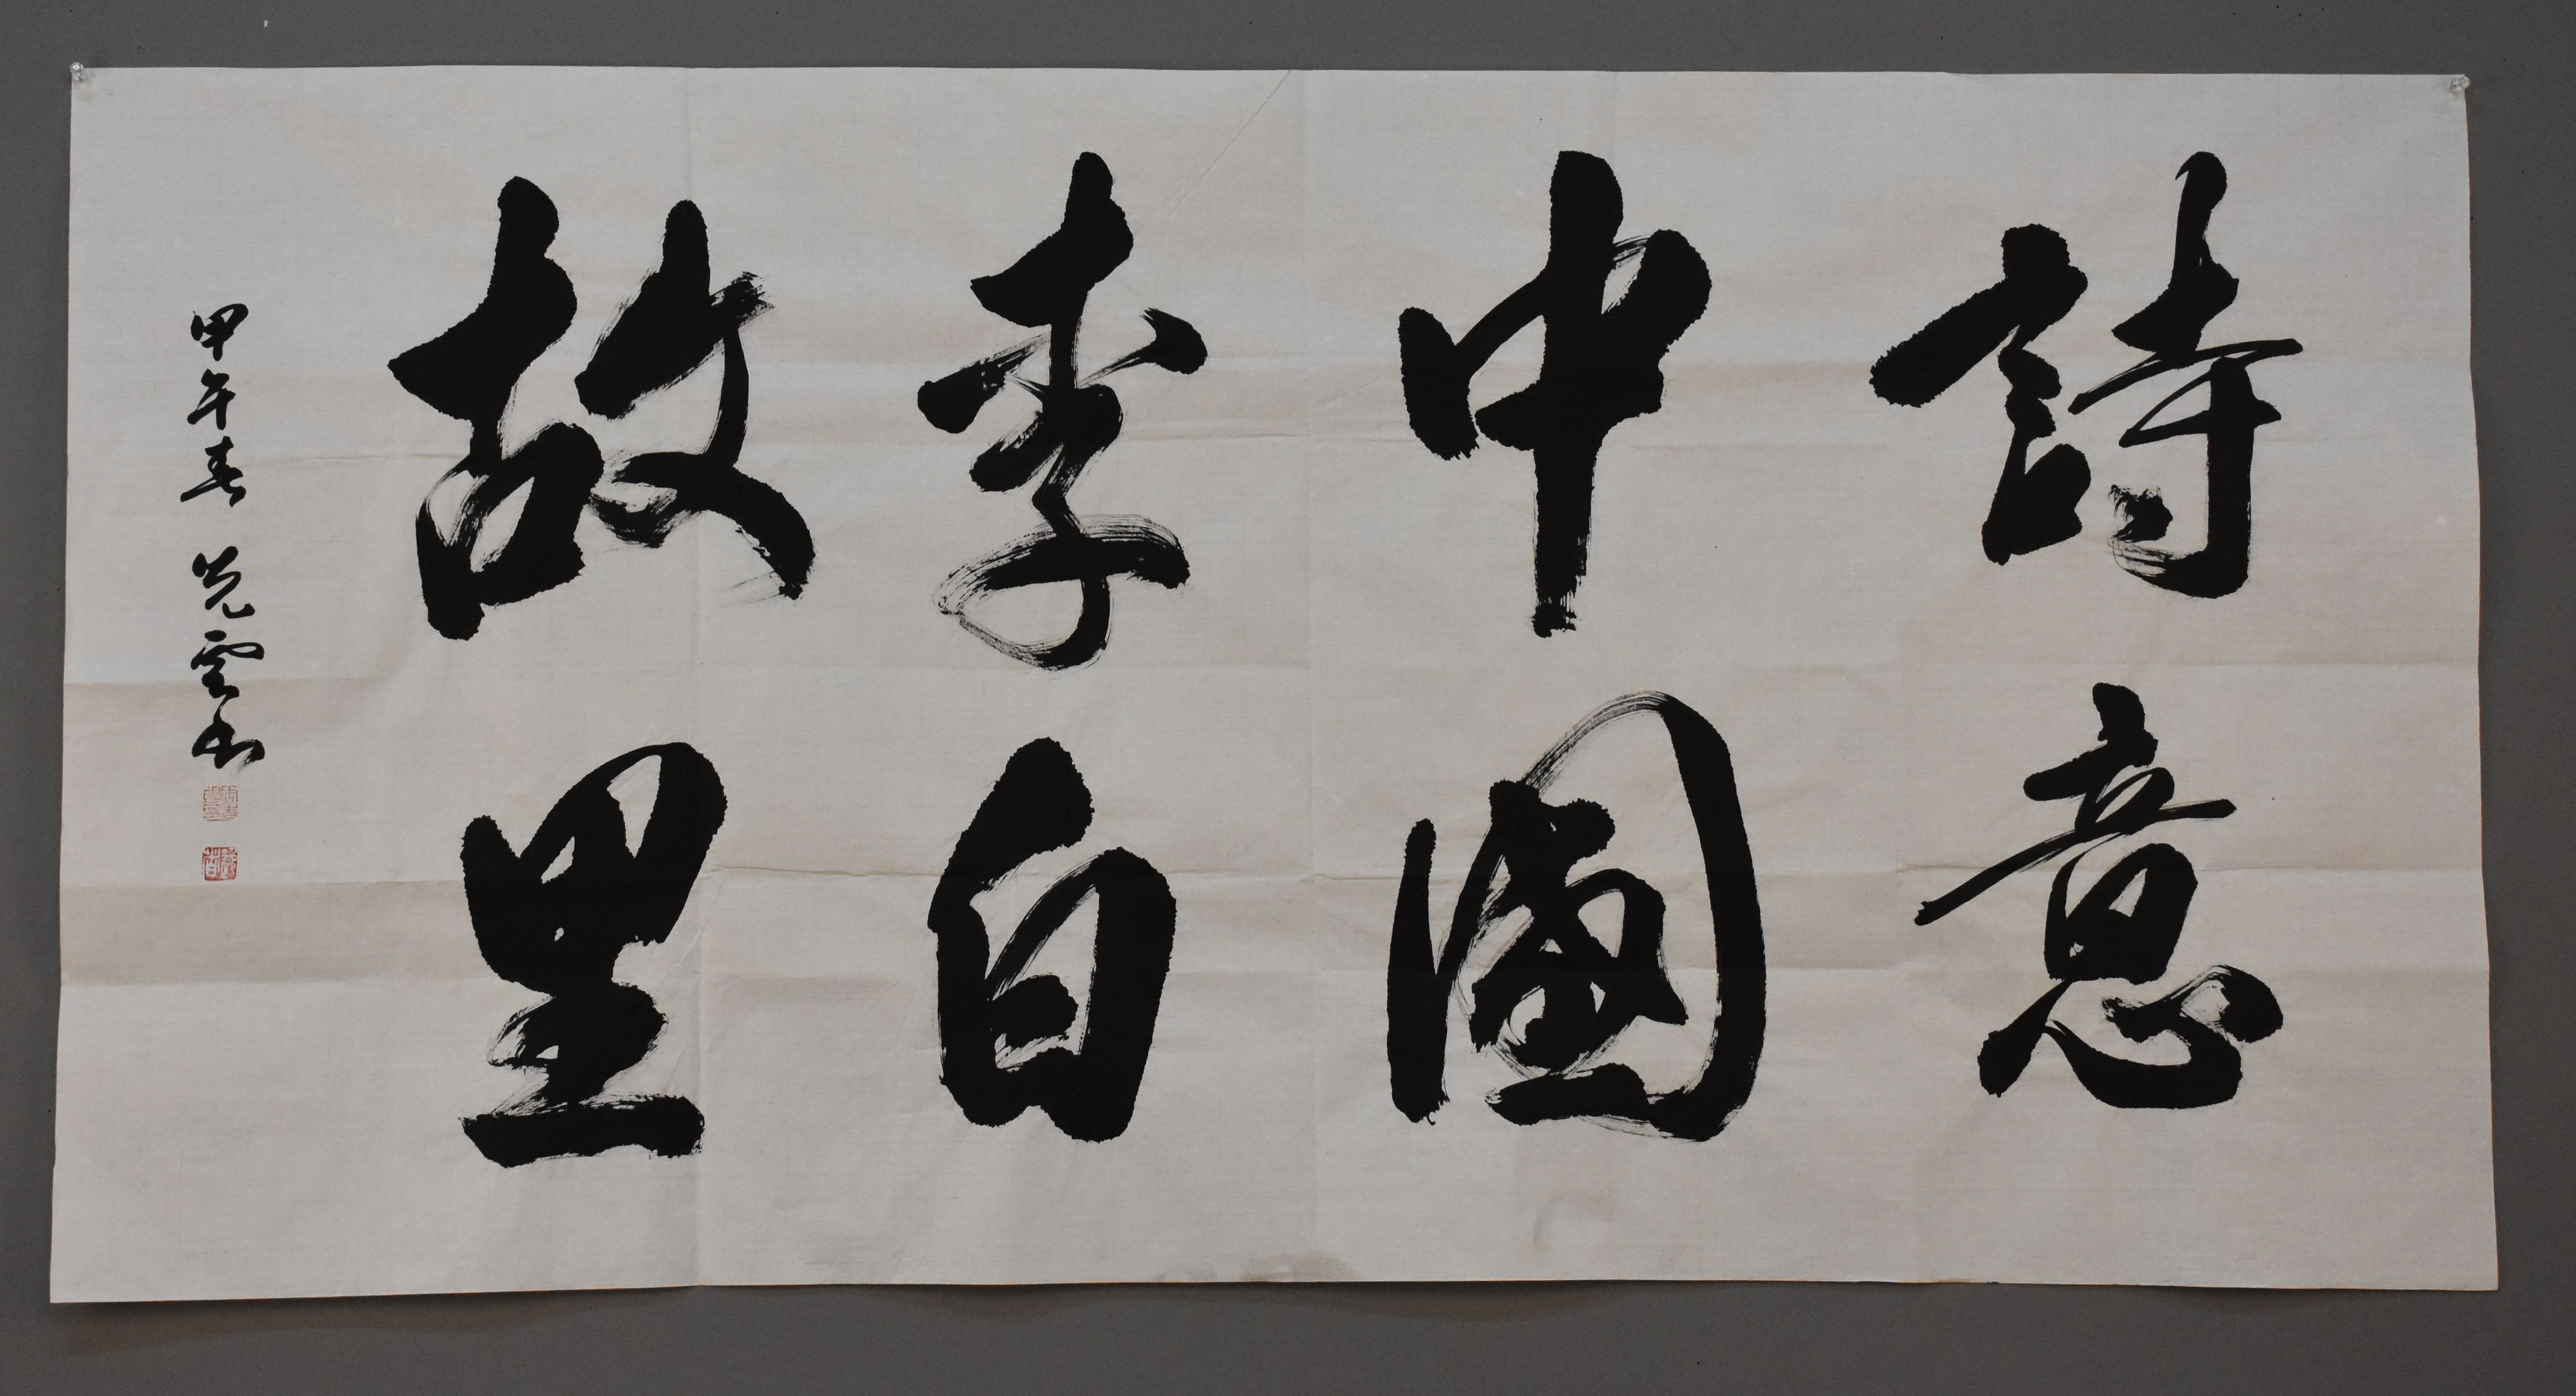 詩意
中國
李白
故里
甲午春 光雲书